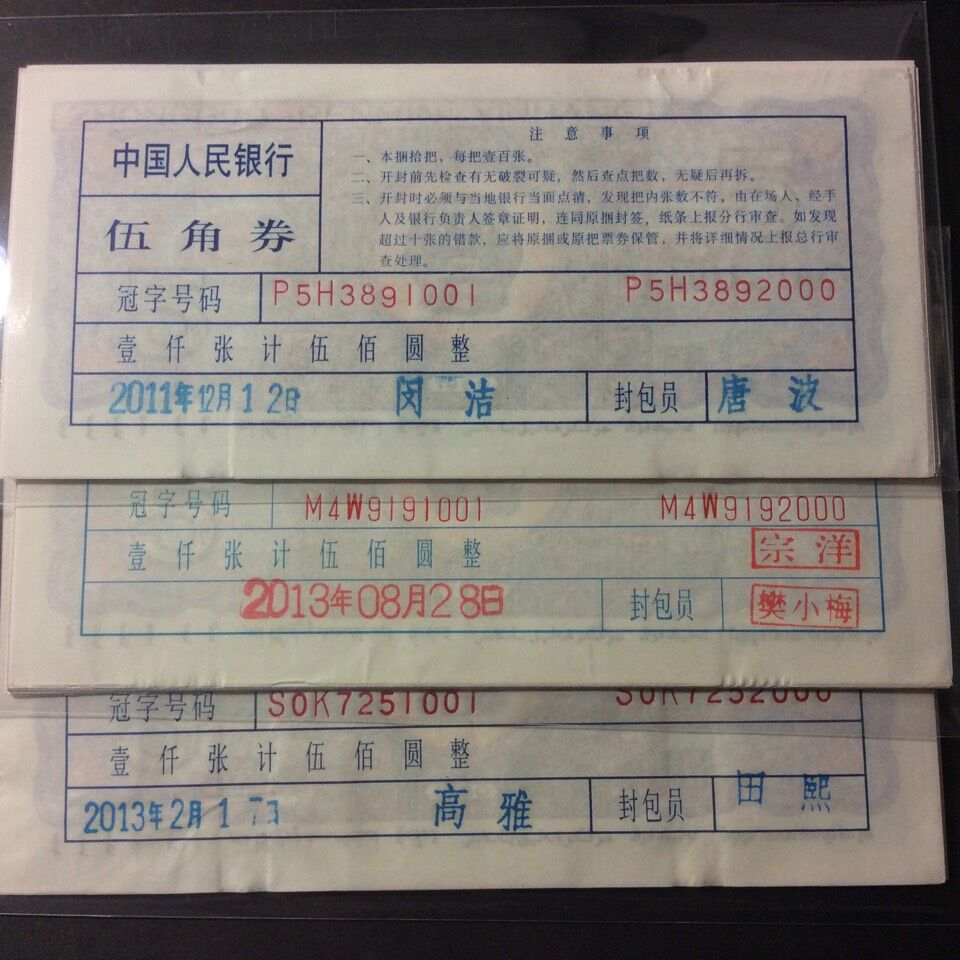 中国人民银行
伍角券
注意事项
一、本捆拾把，每把壹百张。
二、开封前先检查有无破裂可疑，然后查点把数，无疑后再拆。
三、开封时必须与当地银行当面点清，发现把内张数不符，由在场人、经手
人及银行负责人签章证明，连同原捆封签，纸条上报分行审查。如发现
超过十张的错款，应将原捆或原把票券保管，并将详细情况上报总行审
查处理。
冠字号码 P5H3891001 P5H3892000
壹仟张计伍佰圆整
2011年12月12日 闵洁 封包员 唐波
冠字号码 M4W9191001 M4W9192000
壹仟张计伍佰圆整 宗洋
2013年08月28日 封包员 樊小梅
冠字号码 S0K7251001 S0K7252000
壹仟张计伍佰圆整
2013年2月17日 高雅 封包员 田熙